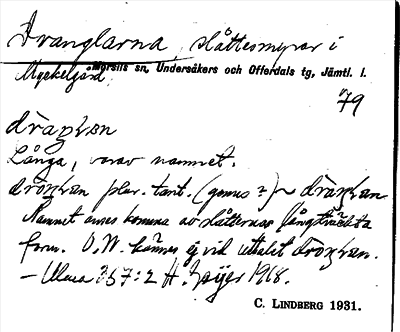 Dranglarna, slåttesmyrar i
Myckelgård. Mörsils sn, Undersåkers och Offerdals tg, Jämtl. l.
79
Långa, varav namnet.
plur. tant. (genus?) ~
Namnet anses komma av slåtternas långsträckta
form. O.W. kännes ej vid uttalet
357:2 H. Geijer 1918.
C. LINDBERG 1931.